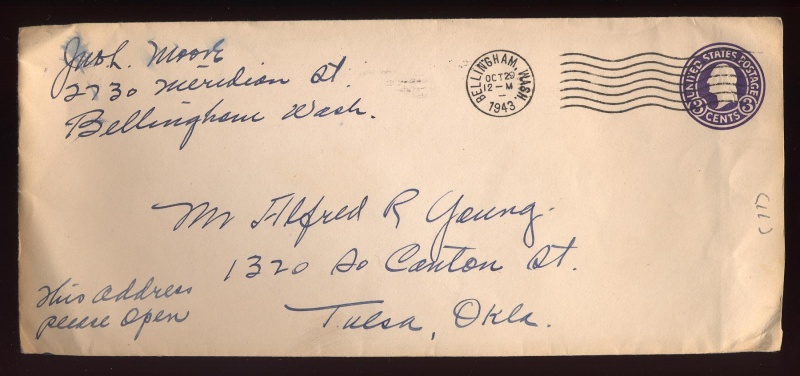 Jno L. Moore
2730 Meridian St.
Bellingham Wash.
BELLINGHAM, WASH.
OCT 29
12-M
1943
UNITED STATES POSTAGE
3 3
CENTS
Mr Alfred R Young.
1320 So Canton St.
Tulsa, Okla.
This address
please open